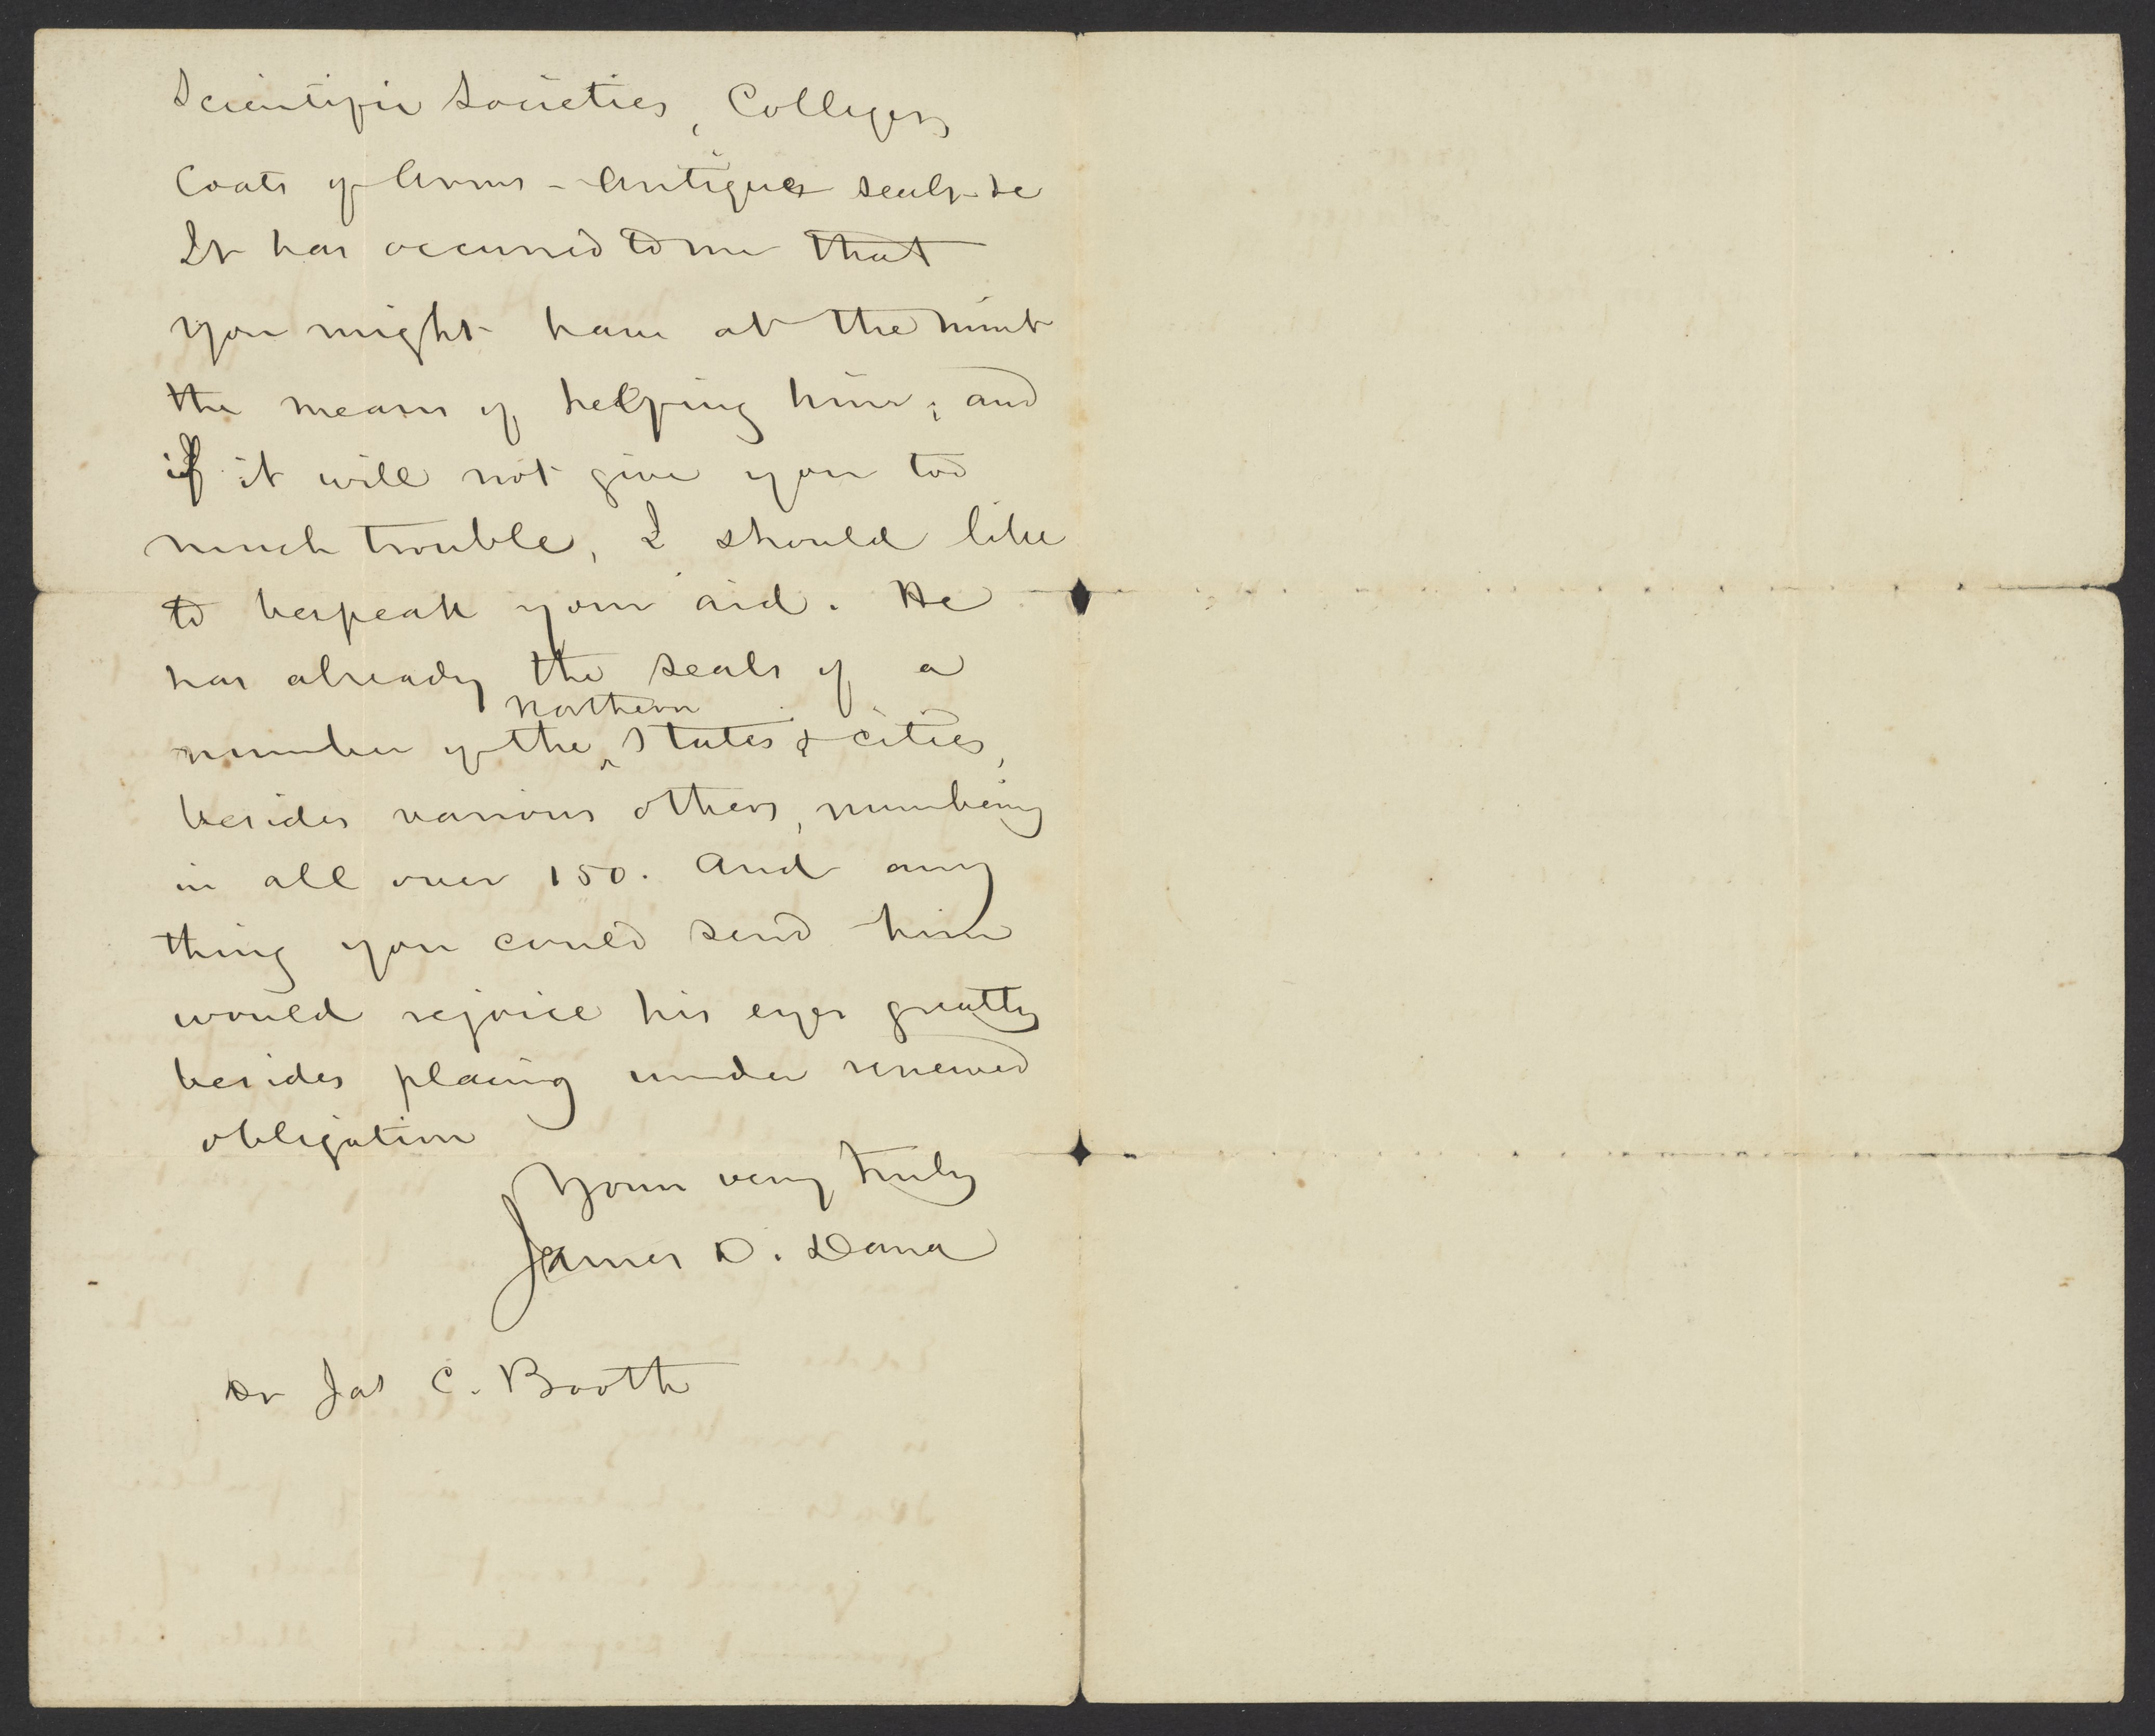 Scientific Societies, Colleges,
Coats of Arms - Antique seals &c
It has occurred to me that
you might have at the mint
the means of helping him; and
if it will not give you too
much trouble, I should like
to bespeak your aid. He
has already the seals of a
northern
number of the ^ States & cities,
besides various others, numbering
in all over 150. And any
thing you could send him
would rejoice his eyes greatly
besides placing under renewed
obligation
Yours very truly
James D. Dana
Dr Jas C. Booth